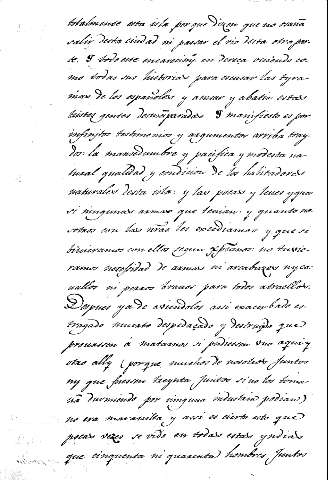 totalmente esta isla porque dizen que no osavã
salir desta ciudad ni passar el rio desta otra par
te. Y todo este encareçim̃ es del ca viendo co
mo todas sus historias para escusar las tyra
nias de los españoles y acusar y abatir estas
tristes gentes desmãparadas. Y manifiesto es por
infinitos testimonios y argumentos arriba tray
dos: la mansedumbre y pacifica y modesta na
tural qualidad y condicion de los habitadores
naturales desta isla: y las pocas y leves y quasi
si ningunas armas que tenian: y quanto no
sotros con las nrãs los excediamos: y que si
biviéramos con ellos segun xp̃ianos: no tuvie
ramos necesidad de armas ni arcabuzes ny ca
vallos ni perros bravos para todos atraellos.
Despues ya de aviendolos assi exacerbado es
tragado muerto despedaçado y destruydo que
provassen a matarnos si pudiessen uno aqui y
otro ally (porque muchos de nosotros juntos
ny que fuessen treynta juntos si no los toma
vã durmiendo por ninguna industria podian)
no era maravilla y assi es cierto esto que
pocas vezes se vido en todas estas yndias
que cinquenta ni quarenta hombres juntos